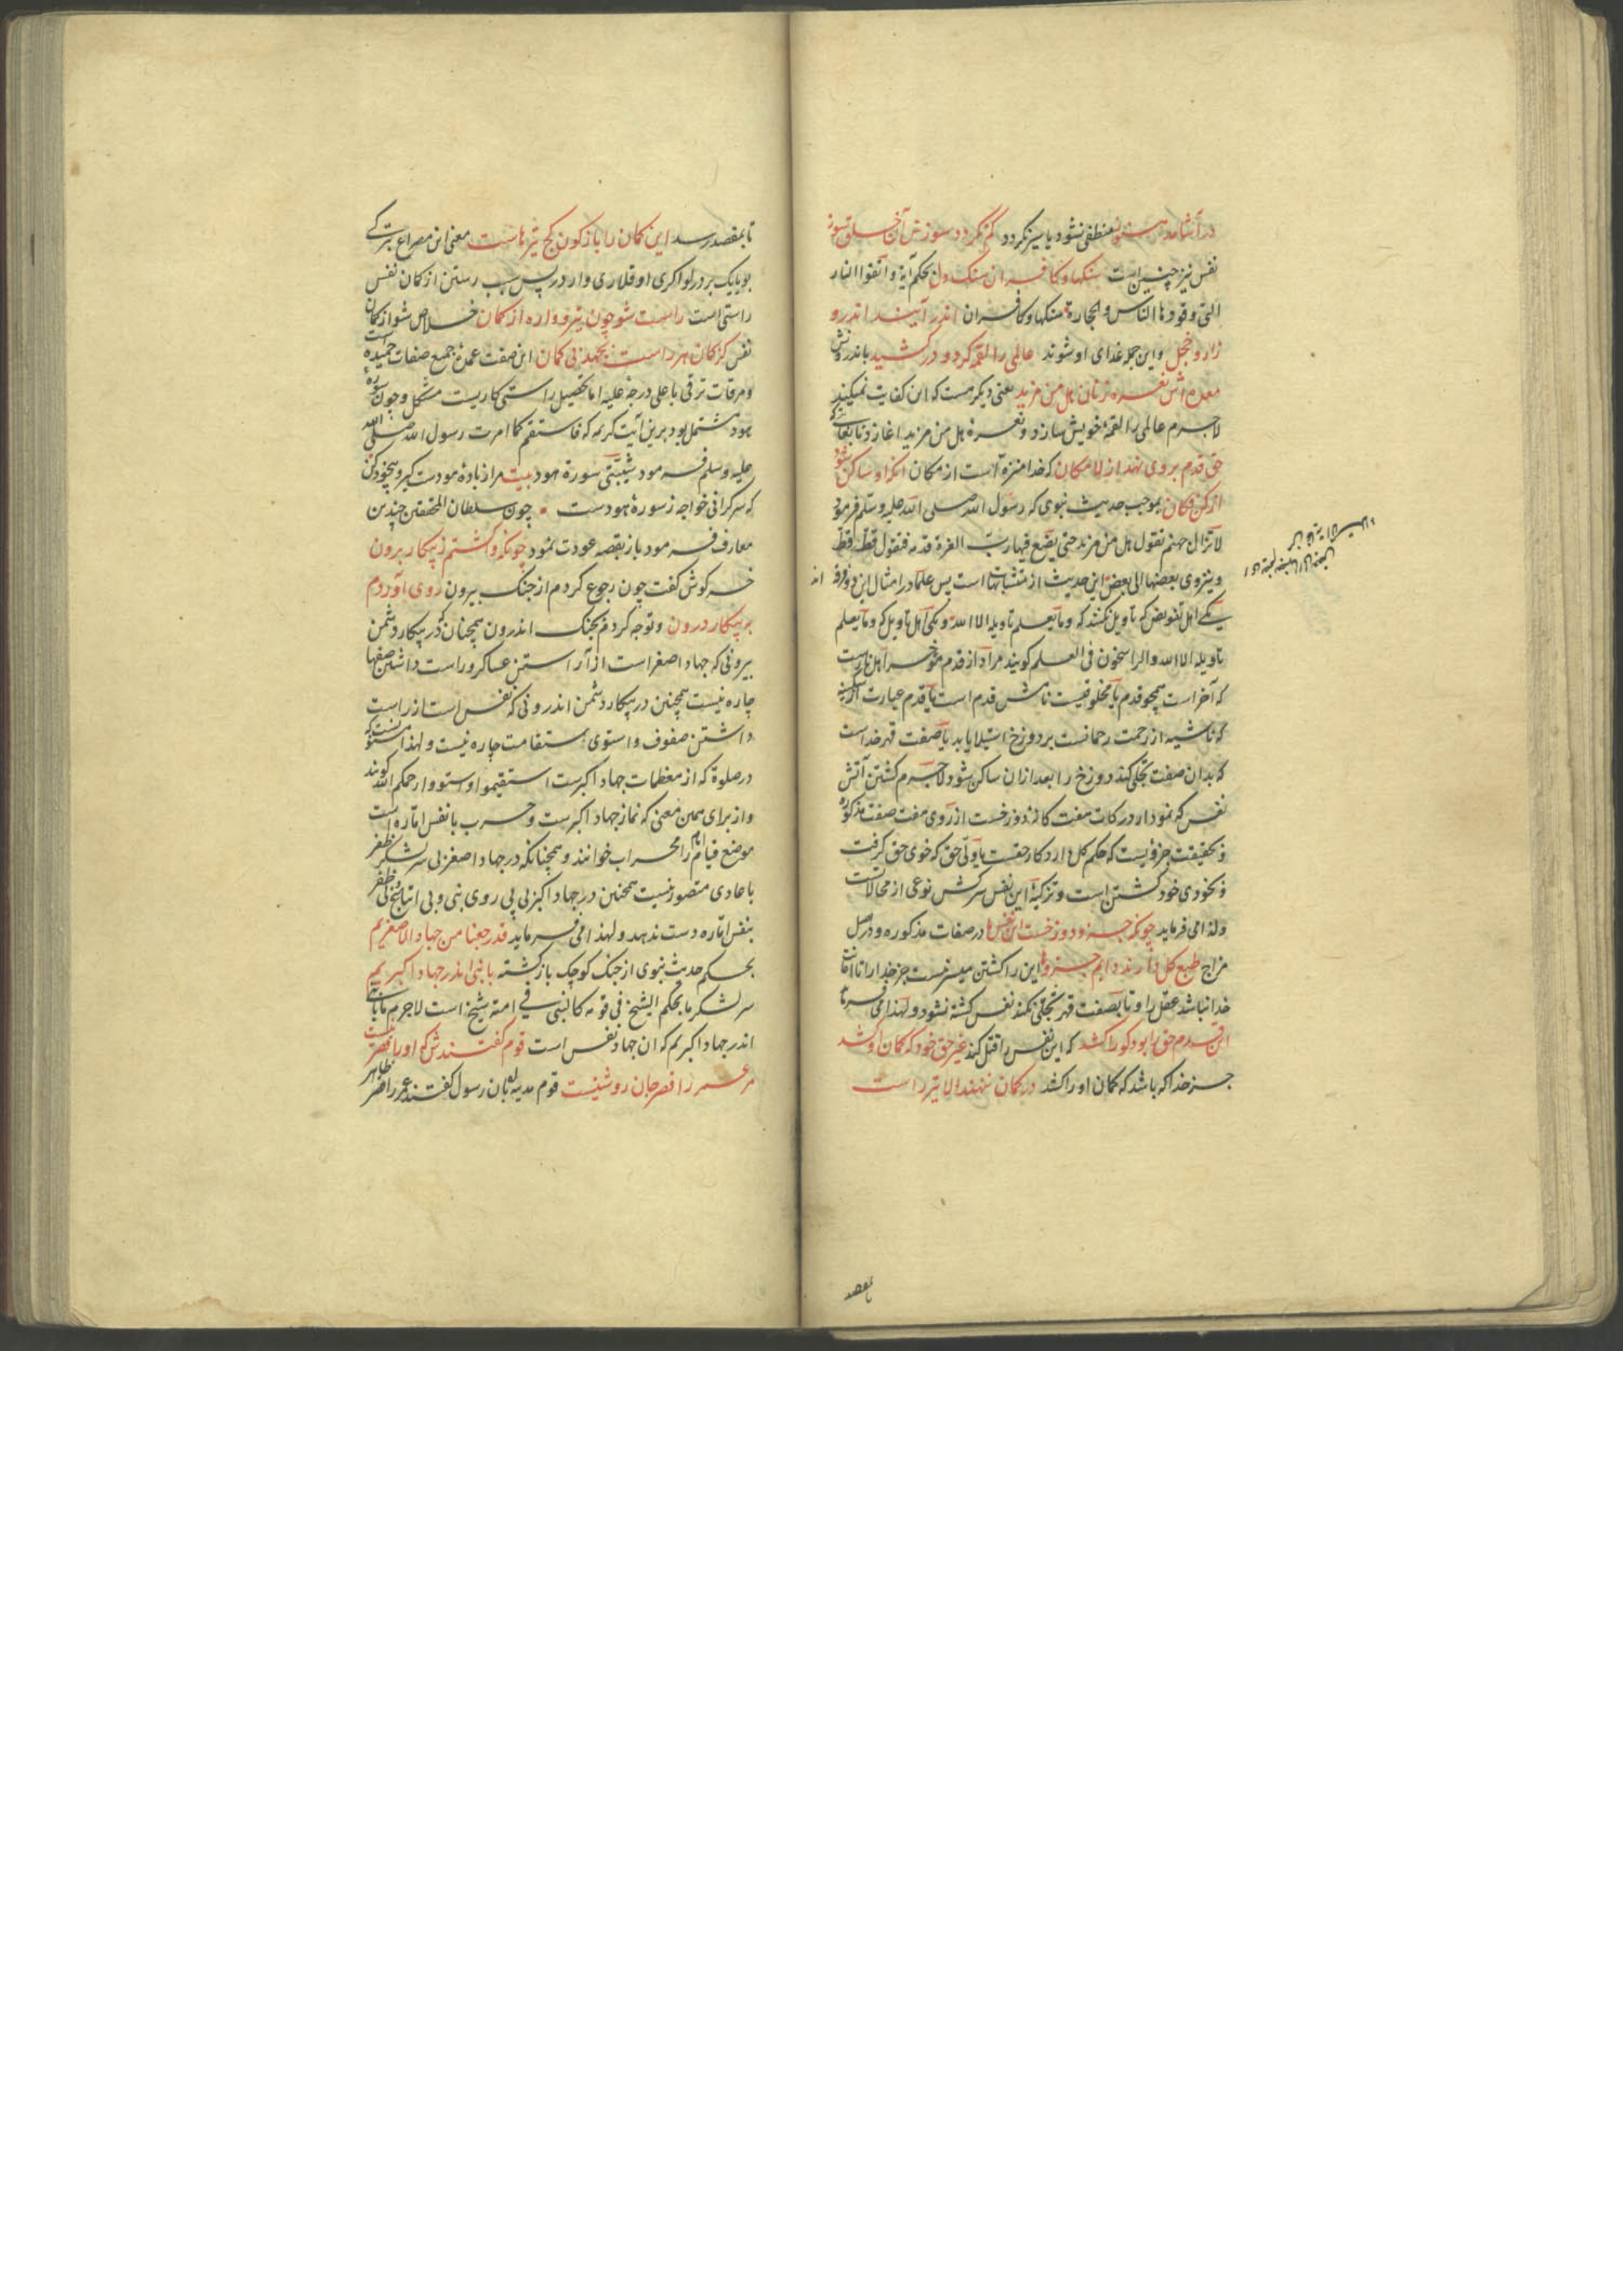 در آشامد هنوز منطفی نشود یا سیر نکردد کم نکردد سوزش آن خلق سوز
نفس نیز چنین است سنکها و کافران سنک دل بحکم آیهٔ و اتقوا النار
التی وقودها الناس و الحجارة سنکها و کافران اندر آیند اندرو
زار و خجل و این جمله غذای او شوند عالمی را لقمه کرد و درکشید باندرونش
معده اش نعره زنان هل من مزید یعنی دیکر هست که این کفایت نمیکند
لاجرم عالمی را لقمهٔ خویش سازد و نعرهٔ هل من مزید اغازد
حق قدم بر وی نهد از لامکان که خدا منزه است از مکان آنکه او ساکن شود
از کن فکان بموجب حدیث نبوی که رسول الله صلی الله علیه و سلم فرمود
لا تزال جهنم تقول هل من مزید حتی یضع فیها رب العزة قدمه فتقول قط قط
و ینزوی بعضها الی بعض این حدیث از متشابهات است پس علما در امثال این دو فرقه اند
یکی اهل تفویض که تاویل نکنند که و ما یعلم تاویله الا الله و یکی اهل تاویل که و ما یعلم
تاویله الا الله و الراسخون فی العلم کویند مراد از قدم مؤخر اهل نارست
که آخر است همچو قدم یا مخلوقیست نامش قدم است یا قدم عبارت از
که ناشیه از رحمت رحمانست بر دوزخ استیلا یابد یا صفت قهر خداست
که بدان صفت تجلی کند دوزخ را بعد ازان ساکن شود لاجرم کشتن آتش
نفس که نمودار درکات هفت کانهٔ دوزخست از روی هفت صفت مذکوره
و بحقیقت جزویست که حکم کل دارد کار حقست یا ولی حق که خوی حق کرفت
و بخودی خود کشتن است و تزکیهٔ این نفس سرکش نوعی از محالاتست
و لذا می فرماید چونکه جزو دوزخست این نفس ما در صفات مذکوره و در اصل
مزاج طبع کل دارند دایم جزوها این را کشتن میسر نیست جز خدا را تا
خدا نباشد عقل را و تا بصفت قهر تجلی نکند نفس کشته نشود و لهذا می فرماید
این قدم حق را بود کو را کشد که این نفس را قتل کند غیر حق خود که کمان او کشد
جز خدا که باشد که کمان او را کشد در کمان ننهند الا تیر راست
تا بمقصد
تا بمقصد رسد این کمان را باژکون کج تیرهاست معنی این مصراع
بو یایک بردرلو اکری اوقلاری وار در پس سبب رستن از کمان نفس
راستی است راست شو چون تیر و واره از کمان خلاص شو از کمان
نفس کز کمان هر راست بجهد بی کمان این صفت عمدهٔ جمیع صفات حمیده است
و مرقات ترقی باعلی درجهٔ علیه اما تحصیل راستی کاریست مشکل و چون سورهٔ
هود مشتمل بود برین آیت کریمه که فاستقم کما امرت رسول الله صلی الله
علیه و سلم فرمود شیبتنی سورة هود بیت مرا ز بادهٔ هودست کیر و بیخود کن
که سرکرانی خواجه ز سورهٔ هودست چون سلطان المحققین چندین
معارف فرمود باز بقصه عودت نمود چونکه واکشتم ز پیکار برون
خرکوش کفت چون رجوع کردم از جنک بیرون روی آوردم
به پیکار درون و توجه کردم بجنک اندرون همچنان که در پیکار دشمن
بیرونی که جهاد اصغر است از آراستن عساکر و راست داشتن صفها
چاره نیست همچنین در پیکار دشمن اندرونی که نفس است از راست
داشتن صفوف و استوی استقامت چاره نیست و لهذا
در صلوة که از معظمات جهاد اکبرست استقیموا و استووا رحمکم الله کویند
و از برای همین معنی که نماز جهاد اکبرست و حرب با نفس اماره است
موضع قیام امام را محراب خوانند و همچنانکه در جهاد اصغر بی سر لشکر ظفر
با عادی متصور نیست همچنین در جهاد اکبر بی پی روی نبی و بی اتباع شیخ ظفر
بنفس اماره دست ندهد و لهذا می فرماید قد رجعنا من جهاد الاصغریم
بحکم حدیث نبوی از جنک کوچک بازکشته با نبی اندر جهاد اکبریم
سر لشکر ما بحکم الشیخ فی قومه کالنبی فی امته شیخ است لاجرم ما با
اندر جهاد اکبریم که ان جهاد نفس است قوم کفتندش که او را قصر نیست
مر عمر را قصر جان روشنیست قوم مدینه بان رسول کفتند عمر را قصر ظاهر